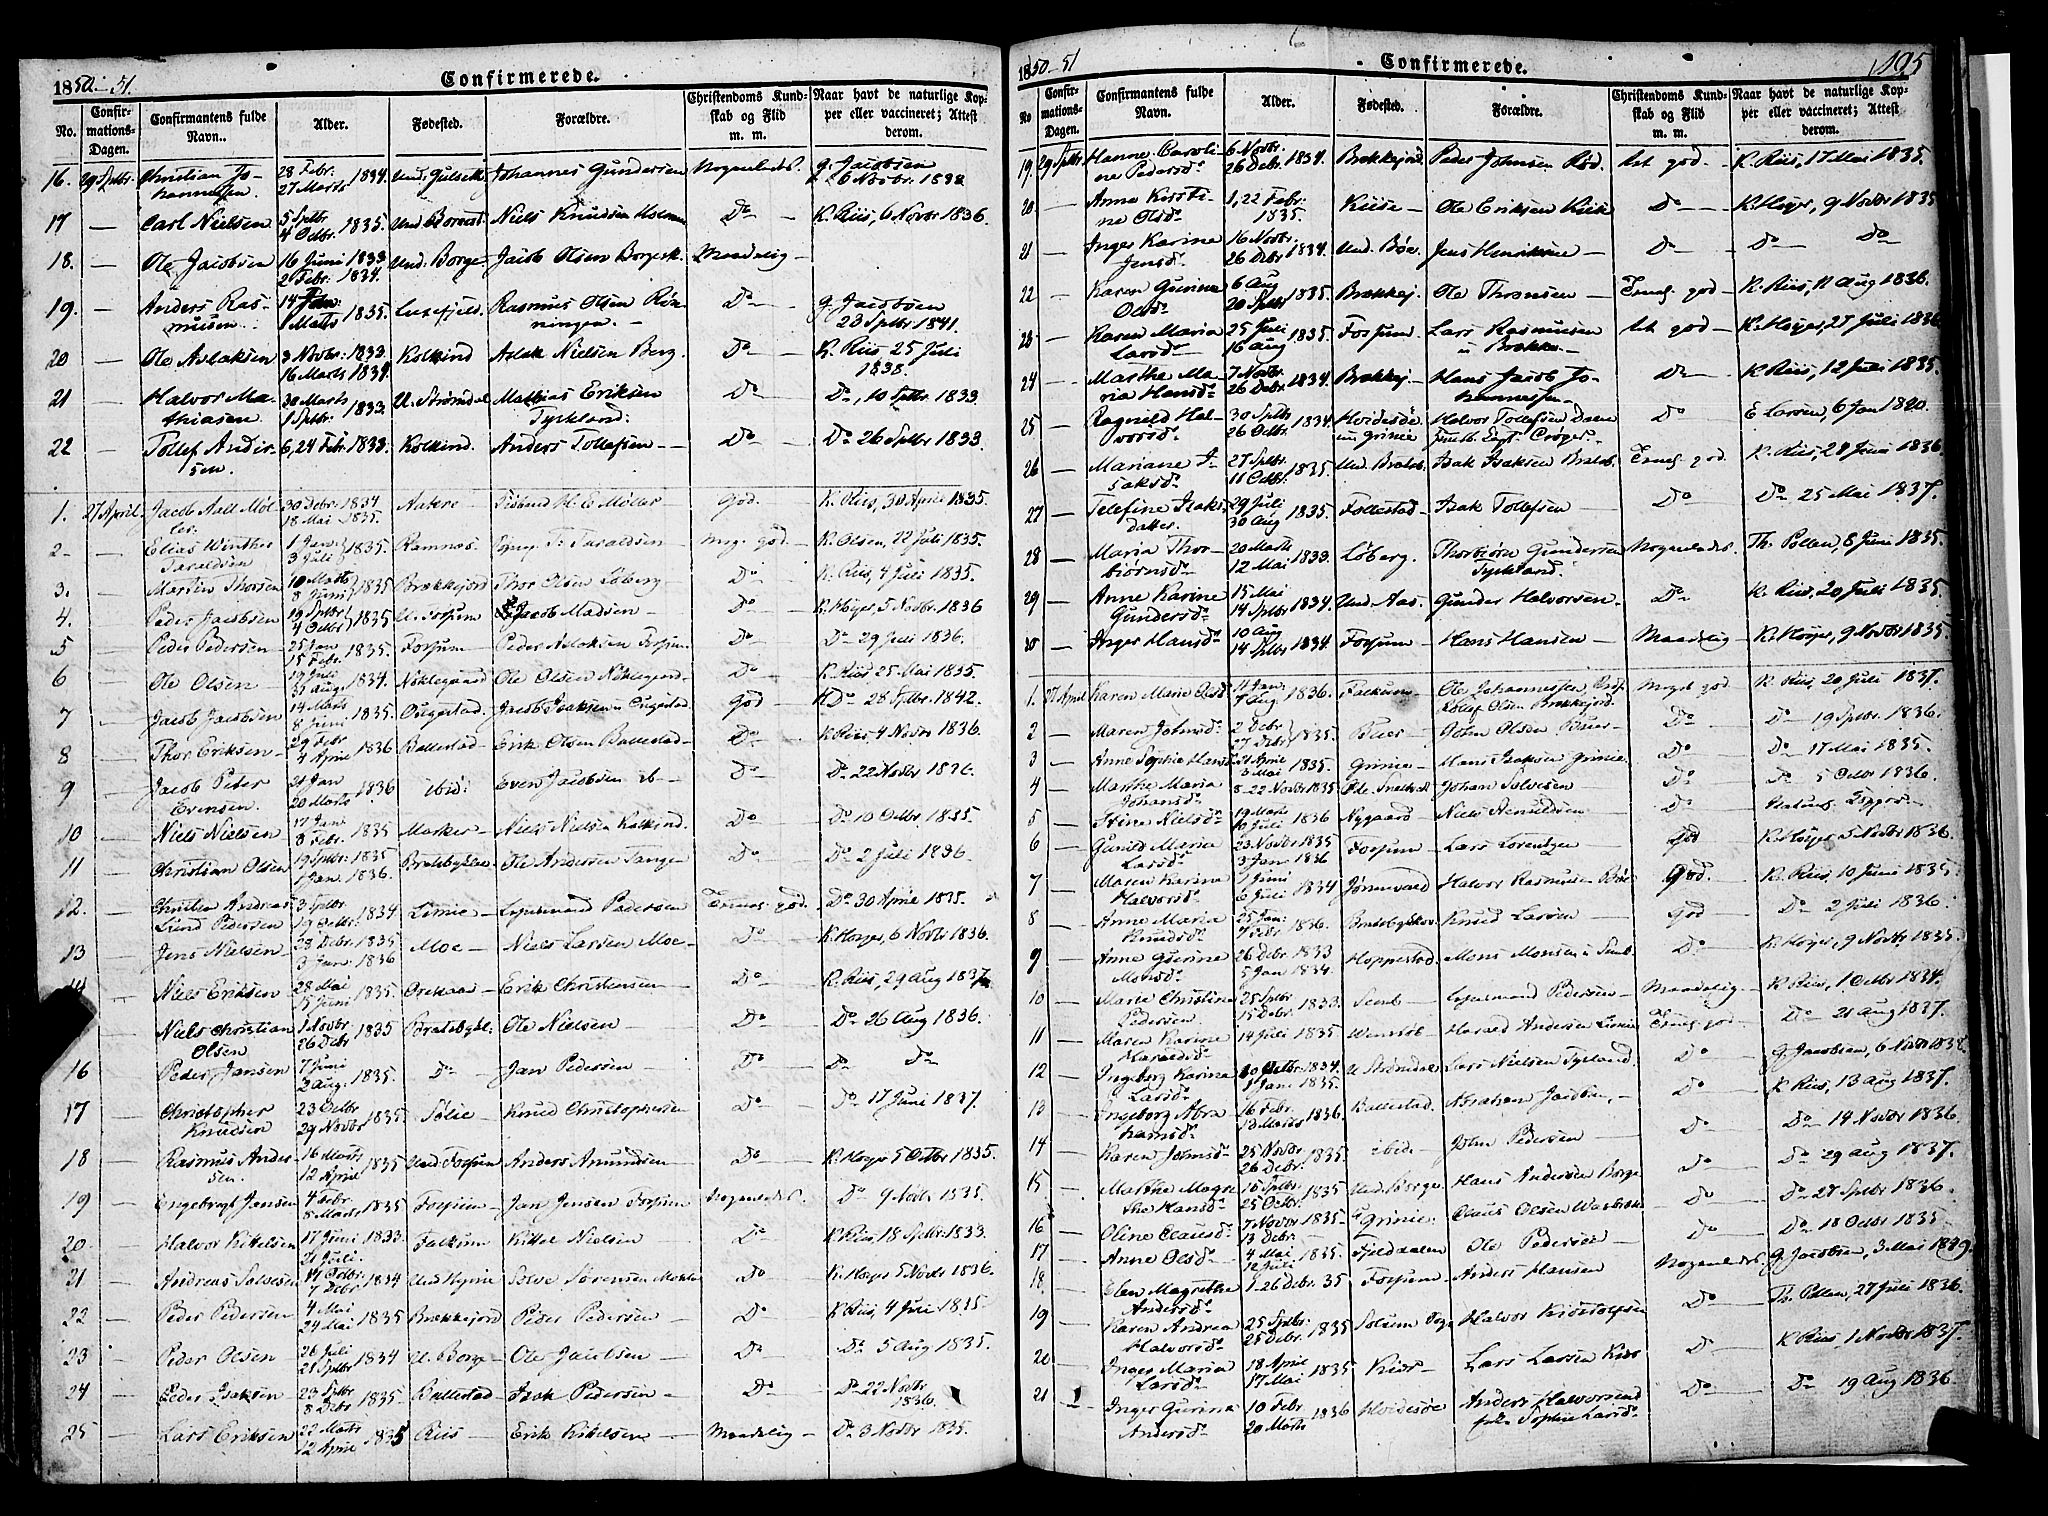 1850-51. Confirmerede.
No. Confirmations-Dagen. Confirmantens fulde Navn. Alder. Fødested. Forældre. Christendoms Kundskab og Flid m. m. Naar havt de naturlige Kopper eller vaccineret; Attest derom.
16. 29 Sptbr. Christian Johannesen 28 Febr. 27 Marts 1834. Und. Gulset Johannes Gundersen Nogenledes. G. Jacobsen 6 Novbr. 1838
17 — Carl Nielsen 5 Sptbr 4 Octbr. 1835. Niels Knudsen K. Riis, 6 Novbr 1836.
18. — Ole Jacobsen 16 Juni 1833 2 Febr. 1834. Und. Borge Jacob Olsen Maadelig
19. — Anders Rasmusen 14 Jan 1 Marts 1835. Rasmus Olsen Rønningen. Do G. Jacobsen 23 Sptbr 1841.
20 — Ole Aslaksen 3 Novbr: 1833 16 Marts 1834. Kolkind Aslak Nielsen Berg. Do K. Riis 25 Juli 1838.
21 — Halvor Mathiasen 30 Marts 1 Sptbr. 1833. U. Strømdal Mathias Eriksen Tyskland. Do Do, 10 Sptbr 1833.
22 — Tollef Andersen. 6, 24 Febr 1833. Kolkind. Anders Tollefsen Do Do 26 Sptbr 1833.
1. 27 April Jacob Aall Møller. 30 Debr. 1834 18 Mai 1835. H. E. Møller God. K. Riis, 30 April 1835.
2 — Elias Winther Taraldsen 1 Jan 3 Juli 1835. Ramnæs. T. Taraldsen Meg. god. K. Olsen, 22 Juli 1835.
3. — Martin Thorsen 10 Marts 8 Juni 1835 Brækkejord Thor Olsen Løberg Do K. Riis, 4 Juli 1835.
4. — Peder Jacobsen 19 Sptbr 4 Octbr 1835 U. Fossum Jacob Madsen Do K. Høyer 5 Novbr. 1836
5 — Peder Pedersen 25 Jan 15 Febr. 1835. Fossum Peder Aslaksen Fossum Do Do 29 Juli 1836.
6 — Ole Olsen 19 Juli 31 Aug. 1834. Nøklegaard Ole Olsen Do K. Riis 25 Mai 1835.
7 — Jacob Jacobsen 14 Marts 8 Juni 1835. Ougestad. Jacob Isaksen Ougestad God Do 28 Sptbr. 1842.
8 — Thor Eriksen 29 Febr 4 April 1836 Ballestad Erik Olsen Ballestad Do K. Riis, 4 Novbr 1836.
9 — Jacob Peder Evensen. 21 Jan 20 Marts 1836 ibid: Even Jacobsen ib Do Do 22 Novbr 1836.
10 — Niels Nielsen 17 Jan 8 Febr. 1835 Marker Niels Nielsen Kolkind. Do Do 10 Octbr. 1835.
11 — Christian Olsen 19 Sptbr: 1835 1 Jan. 1836. Ole Andersen Tangen Do Do 2 Juli 1836.
12. — Christen Andreas Lund Pedersen 3 Sptbr. 19 Octbr. 1834. Limie Pedersen Do 30 April 1835.
13 — Jens Nielsen 28 Debr 1835 3 Jan. 1836 Moe Niels Larsen Moe Do K. Høyer, 6 Novbr 1836.
14 — Niels Eriksen 28 Mai 15 Juni 1835. Erik Christensen Do K. Riis, 29 Aug 1837
— Niels Christian Olsen 1 Novbr 26 Debr 1835 Ole Nielsen Do Do 26 Aug 1836.
16 — Peder Jansen 7 Juni 2 Aug. 1835. Do Jan Pedersen Do Do Do
17 — Christopher Knudsen 23 Octbr 29 Novbr 1835 Sølie Knud Christophersen Do Do 17 Juni 1837.
18 — Rasmus Andersen. 16 Marts 12 April 1835 Und. Fossum Anders Amundsen Do K. Høyer 5 Octbr 1835.
19 — Engebregt Jansen 4 Febr. 8 Marts 1835 Fossum Jan Jensen Fossum Nogenledes. Do 9 Novbr. 1835.
20 — Halvor Kittelsen 17 Juni 21 Juli. 1833. Falkum Kittel Nielsen Do K. Riis 18 Sptbr. 1833.
21 — Andreas Solvesen 14 Octbr. 7 Debr 1834 Solve Sørensen Do K. Høyer 5 Novbr 1836.
22 — Peder Pedersen 4 Mai 24 Mai 1835 Brækkejord Peder Pedersen Do K. Riis, 4 Juli 1835.
23 — Peder Olsen 26 Juli 21 Sptbr 1834 U. Borge Ole Jacobsen Do Do 5 Aug 1835.
24 — Peder Isaksen 23 Sptbr 8 Debr 1835 Ballestad Isak Pedersen Do Do 22 Novbr 1836.
25 — Lars Eriksen 22 Marts 12 April 1835 Riis Erik Kittelsen Maadelig Do 3 Novbr 1835.
1850-51 Confirmerede. 195
No Confirmations-Dagen. Confirmantens fulde Navn. Alder. Fødested. Forældre. Christendoms Kundskab og Flid m. m. Naar havt de naturlige Kopper eller vaccineret; Attest derom.
19. 29 Sptbr. Hanne Caroline Pedersd. 6 Novbr. 26 Debr. 1834. Brækkejord. Peder Johnsen Rød. tet god. K. Riis, 17 Mai 1835.
20 — Anne Kirstine Olsd. 1, 22 Febr. 1835. Kiise Ole Eriksen Kiise Do K. Høyer, 9 Novbr 1835
21 — Inger Karine Jensd. 16 Novbr. 26 Debr 1834. Und. Bøe. Jens Henriksen Do Do Do
22 — Karen Gurine Olsd. 6 Aug 20 Sptbr 1835. Brækkej. Ole Thronsen god K. Riis, 11 Aug 1836.
23 — Karen Maria Larsd. 25 Juli 16 Aug 1835. Fossum Lars Rasmusen tet god K. Høyer, 27 Juli 1836
24 — Marthe Maria Hansd. 7 Novbr. 26 Debr 1834. Brækkej. Hans Jacob Johannessen Do K. Riis, 12 Juli 1835.
25 — Ragnild Halvorsd. 30 Sptbr 26 Octbr. 1834. Hvidesøe Halvor Tollefsen Do E. Larsen, 6 Jan
26 — Mariane Isaksd. 27 Sptbr. 11 Octbr. 1835. Isak Isaksen god. K. Riis, 28 Juni 1836.
27 — Telefine Isaksdatter. 29 Juli 30 Aug 1835. Follestad Isak Tollefsen Do Do 25 Mai 1837.
28 — Maria Thorbiørnsd. 20 Marts 12 Mai 1833. Løberg. Thorbiørn Gundersen Tyskland. Nogenledes. Th. Pollen, 8 Juni 1835.
29 — Anne Karine Gundersd. 15 Mai 14 Sptbr 1834. Und. Aas. Gunder Halvorsen Do K. Riis, 20 Juli 1835.
30 — Inger Hansd. 10 Aug 14 Sptbr 1834. Fossum Hans Hansen Maadelig K. Høyer, 9 Novbr 1835.
1. 27 April Karen Marie Olsd. 11 Jan. 7 Aug. 1836. Falkum Ole Johannessen Tollef Olsen Brækkejord. Meget god K. Riis, 20 Juli 1837.
2 — Maren Johnsd. 2 Debr 27 Debr 1835. Buer John Olsen Buer Do Do 19 Sptbr. 1836.
3 — Anne Sophie Hansd. 21 April 3 Mai 1835. Grinie Hans Isaksen Grinie. Do Do 17 Mai 1835.
4 — Marthe Maria Johansd. 8-22 Novbr 1835 Johan Solvesen Do Do 5 Octbr 1836.
5 — Stine Nielsd. 19 Marts 10 Juli 1836 Nygaard Niels Do
6 — Gunild Maria Larsd. 23 Novbr 1835 3 Jan 1836 Fossum Lars Lorentzen God K. Høyer 5 Novbr 1836.
7 — Maren Karina Halvorsd. 1 Juni 6 Juli 1834 Jønnevald Halvor Rasmusen God. K. Riis, 10 Juni 1835
8 — Anne Maria Knudsd. 25 Jan: 7 Febr 1836. Knud Larsen God Do 2 Juli 1836.
9 — Anne Gurine Monsd. 26 Debr 1833 5 Jan 1834. Hoppestad. Mons Monsen Do K. Høyer, 9 Novbr 1835.
10 — Marie Christine Pedersen 25 Sptbr 15 Debr. 1833. Semb Pedersen Maadelig K. Riis, 1 Octbr 1834.
11 — Maren Karine Haraldsd. 14 Juli 1835 Harald Andersen god. Do 21 Aug 1837.
12 — Ingeborg Karina Larsd. Octbr. 1834. 1 Jan. 1835. U. Strømdal Lars Nielsen Do G. Jacobsen, 6 Novbr 1838.
13 — Ingeborg Abrahamsd. 16 Febr. 13 Marts 1836. Ballestad. Abraham Do K. Riis, 13 Aug 1837.
14 — Karen Johnsd. 25 Novbr 26 Debr. 1835. ibid. John Pedersen Do Do 14 Novbr 1836
15 — Marthe Magrethe Hansd. 16 Sptbr. 25 Octbr. 1835 Und. Borge Hans Andersen Borge Do Do 29 Aug 1837.
16 — Oline Clausd. 7 Novbr 13 Debr. 1835 Grinie. Claus Olsen Do Do 27 Sptbr 1836.
17 — Anne Olsd. 4 Mai 12 Juli 1835. Fjeldaalen Ole Pedersen Do Do 18 Octbr 1835
18. — Elen Magrethe Andersd. 1-26 Debr. 35 Fossum Anders Hansen Nogenledes. G. Jacobsen, 3 Mai
19 — Karen Andrea Halvorsd. 25 Sptbr. 25 Debr. 1835 Solum Halvor Do Th. Pollen, 27 Juli 1836.
20 — Inger Maria Larsd. 18 April 17 Mai 1835 Kiis Lars Larsen Kiis Do K. Riis, 1 Novbr 1837.
21 — Inger Gurina Andersd. 10 Febr. 20 Marts 1836 Hvidesøe Anders Halvorsen Sophie Larsd. Do Do 19 Aug 1836